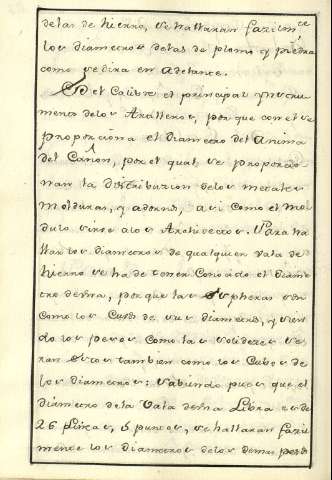 delas de hierro, se hallaran facilmte
los diametros delas de plomo y piedra
como se dira en adelante.
Es el Calibre el principal ynstru
mento delos Artilleros, porque con el se
proporciona el Diametro del Anima
del Cañon, por el qual se proporcio
nan la distribucion delos metales
molduras, y adorno, asi como el mo
dulo sirve alos Architectos. Para ha
llar los diametros de qualquier vala de
hierro se ha de tener Conocido el diame
tro de una, porque las Spheras son
como los Cubos de sus diametros, y sien
do los pesos como las solideces se
ran estos tambien como los Cubos de
los diametros: sabiendo pues que el
diametro dela Vala de una Libra es de
26 Lineas, 5 puntos, se hallaran facil
mente los diametros delos demas pesos